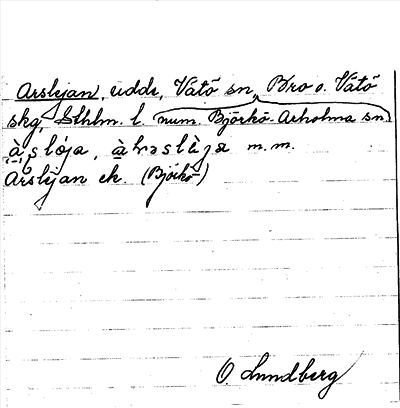 Arslejan, udde, Vätö sn, Bro o. Vätö
skg, Sthlm. l. num. Björkö-Arholma sn
àslòja, m.m.
Arslejan ek. (Björkö)
O. Lundberg